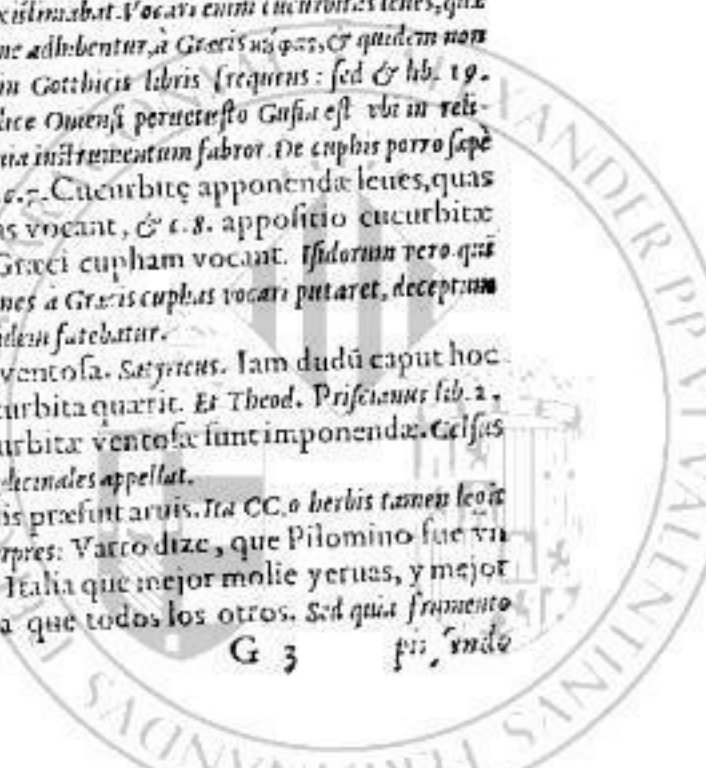 existimabat. Vocari enim cucurbitas leues, quæ
ne adhibentur, à Græcis κύφας, & quidem non
in Gotthicis libris frequens: sed & lib. 19.
dice Ouetensi peruetusto Gusia est vbi in reli-
instrumentum fabror. De cuphis porro sæpè
c. 7. Cucurbitę apponendæ leues, quas
as vocant, & c. 8. appositio cucurbitæ
Græci cupham vocant. Isidorum vero qui
nes à Græcis cuphas vocari putaret, deceptum
idem fatebatur.
ventosa. Satyricus. Iam dudū caput hoc
curbita quærit. Et Theod. Priscianus lib. 2.
urbitæ ventosæ sunt imponendæ. Celsus
dicinales appellat.
is præsunt aruis. Ita CC. o herbis tamen legit
rpres: Varro dize, que Pilomino fue vn
Italia que mejor molie yeruas, y mejor
a que todos los otros. Sed quia frumento
G 3
ALEXANDER PP VI VALENTINUS FERDINANDUS